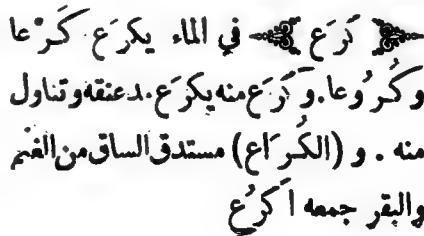 ﴿كَرَع﴾ في الماء يكرَع كَرْعا
وكُرُوعا. وكَرَع منه يكرَع. مد عنقه وتناول
منه . و (الكُرَاع) مستدق الساق من الغنم
والبقر جمعه اكرُع